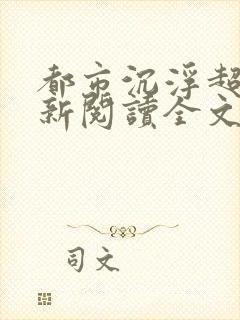 都市沉浮超
新閱讀全文
司文